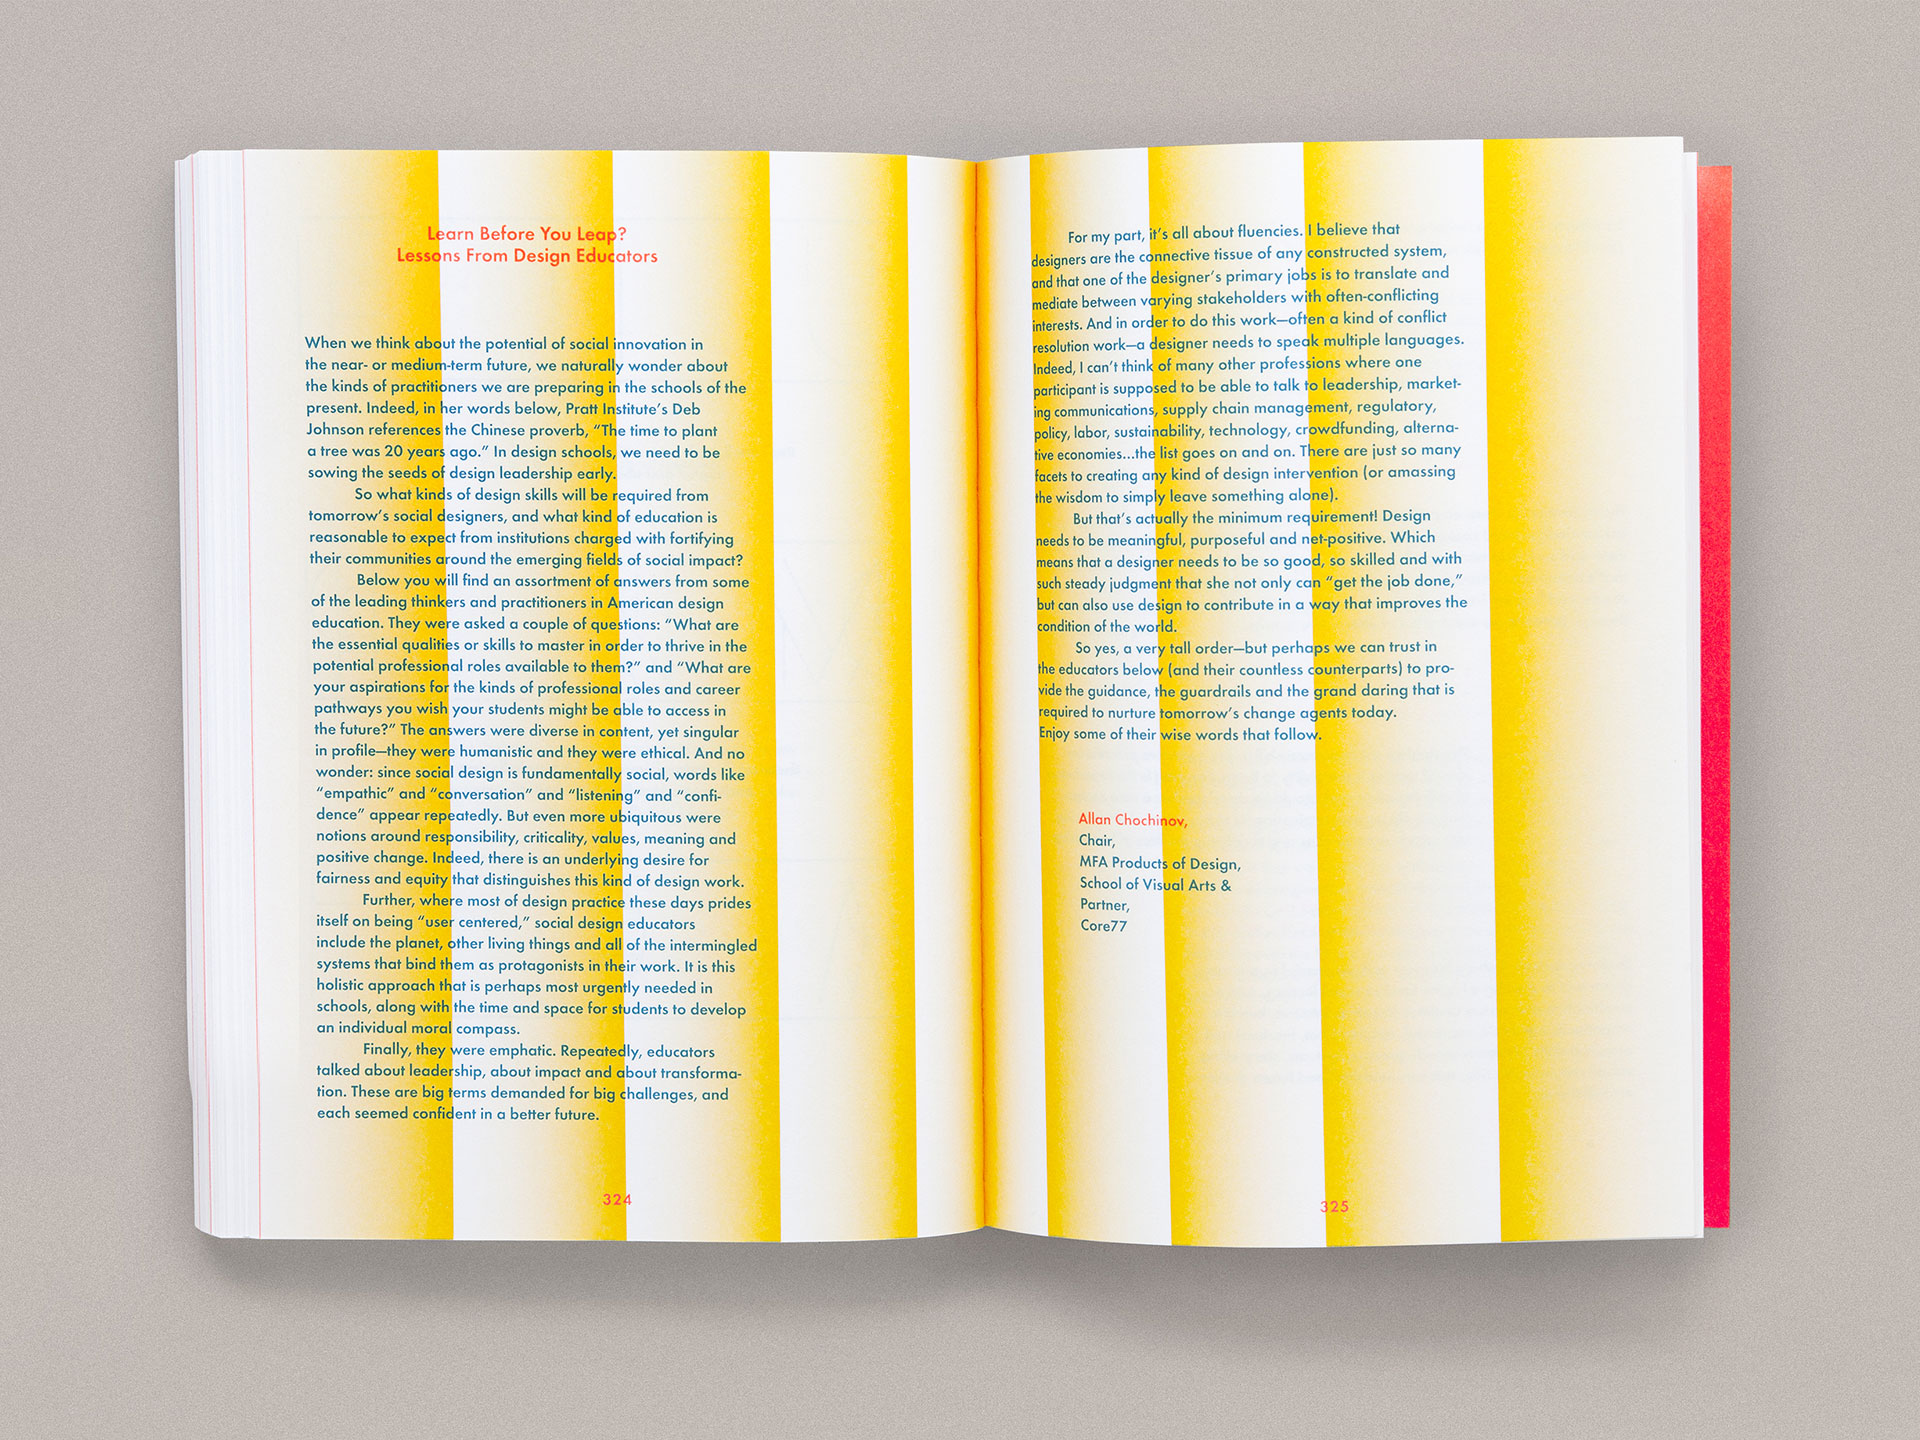 Learn Before You Leap?
Lessons From Design Educators
When we think about the potential of social innovation in
the near- or medium-term future, we naturally wonder about
the kinds of practitioners we are preparing in the schools of the
present. Indeed, in her words below, Pratt Institute’s Deb
Johnson references the Chinese proverb, “The time to plant
a tree was 20 years ago.” In design schools, we need to be
sowing the seeds of design leadership early.
So what kinds of design skills will be required from
tomorrow’s social designers, and what kind of education is
reasonable to expect from institutions charged with fortifying
their communities around the emerging fields of social impact?
Below you will find an assortment of answers from some
of the leading thinkers and practitioners in American design
education. They were asked a couple of questions: “What are
the essential qualities or skills to master in order to thrive in the
potential professional roles available to them?” and “What are
your aspirations for the kinds of professional roles and career
pathways you wish your students might be able to access in
the future?” The answers were diverse in content, yet singular
in profile—they were humanistic and they were ethical. And no
wonder: since social design is fundamentally social, words like
“empathic” and “conversation” and “listening” and “confi-
dence” appear repeatedly. But even more ubiquitous were
notions around responsibility, criticality, values, meaning and
positive change. Indeed, there is an underlying desire for
fairness and equity that distinguishes this kind of design work.
Further, where most of design practice these days prides
itself on being “user centered,” social design educators
include the planet, other living things and all of the intermingled
systems that bind them as protagonists in their work. It is this
holistic approach that is perhaps most urgently needed in
schools, along with the time and space for students to develop
an individual moral compass.
Finally, they were emphatic. Repeatedly, educators
talked about leadership, about impact and about transforma-
tion. These are big terms demanded for big challenges, and
each seemed confident in a better future.
324
For my part, it’s all about fluencies. I believe that
designers are the connective tissue of any constructed system,
and that one of the designer’s primary jobs is to translate and
mediate between varying stakeholders with often-conflicting
interests. And in order to do this work—often a kind of conflict
resolution work—a designer needs to speak multiple languages.
Indeed, I can’t think of many other professions where one
participant is supposed to be able to talk to leadership, market-
ing communications, supply chain management, regulatory,
policy, labor, sustainability, technology, crowdfunding, alterna-
tive economies...the list goes on and on. There are just so many
facets to creating any kind of design intervention (or amassing
the wisdom to simply leave something alone).
But that’s actually the minimum requirement! Design
needs to be meaningful, purposeful and net-positive. Which
means that a designer needs to be so good, so skilled and with
such steady judgment that she not only can “get the job done,”
but can also use design to contribute in a way that improves the
condition of the world.
So yes, a very tall order—but perhaps we can trust in
the educators below (and their countless counterparts) to pro-
vide the guidance, the guardrails and the grand daring that is
required to nurture tomorrow’s change agents today.
Enjoy some of their wise words that follow.
Allan Chochinov,
Chair,
MFA Products of Design,
School of Visual Arts &
Partner,
Core77
325